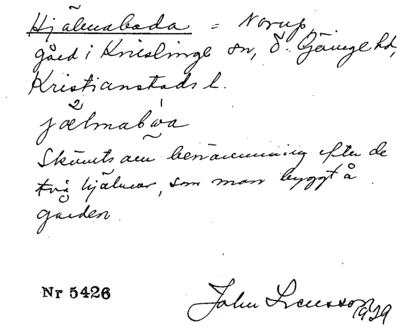 Hjälmaboda = Norup,
gård i Knislinge sn, Ö. Göinge hd,
Kristianstads l.
jælmaböa
Skämtsam benämning efter de
två hjälmar, som man byggt å
gården.
Nr 5426
John Svensson 1929